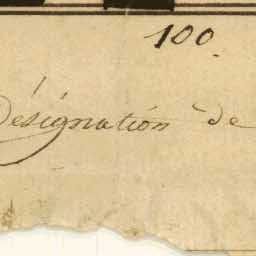 100.
Désignation de